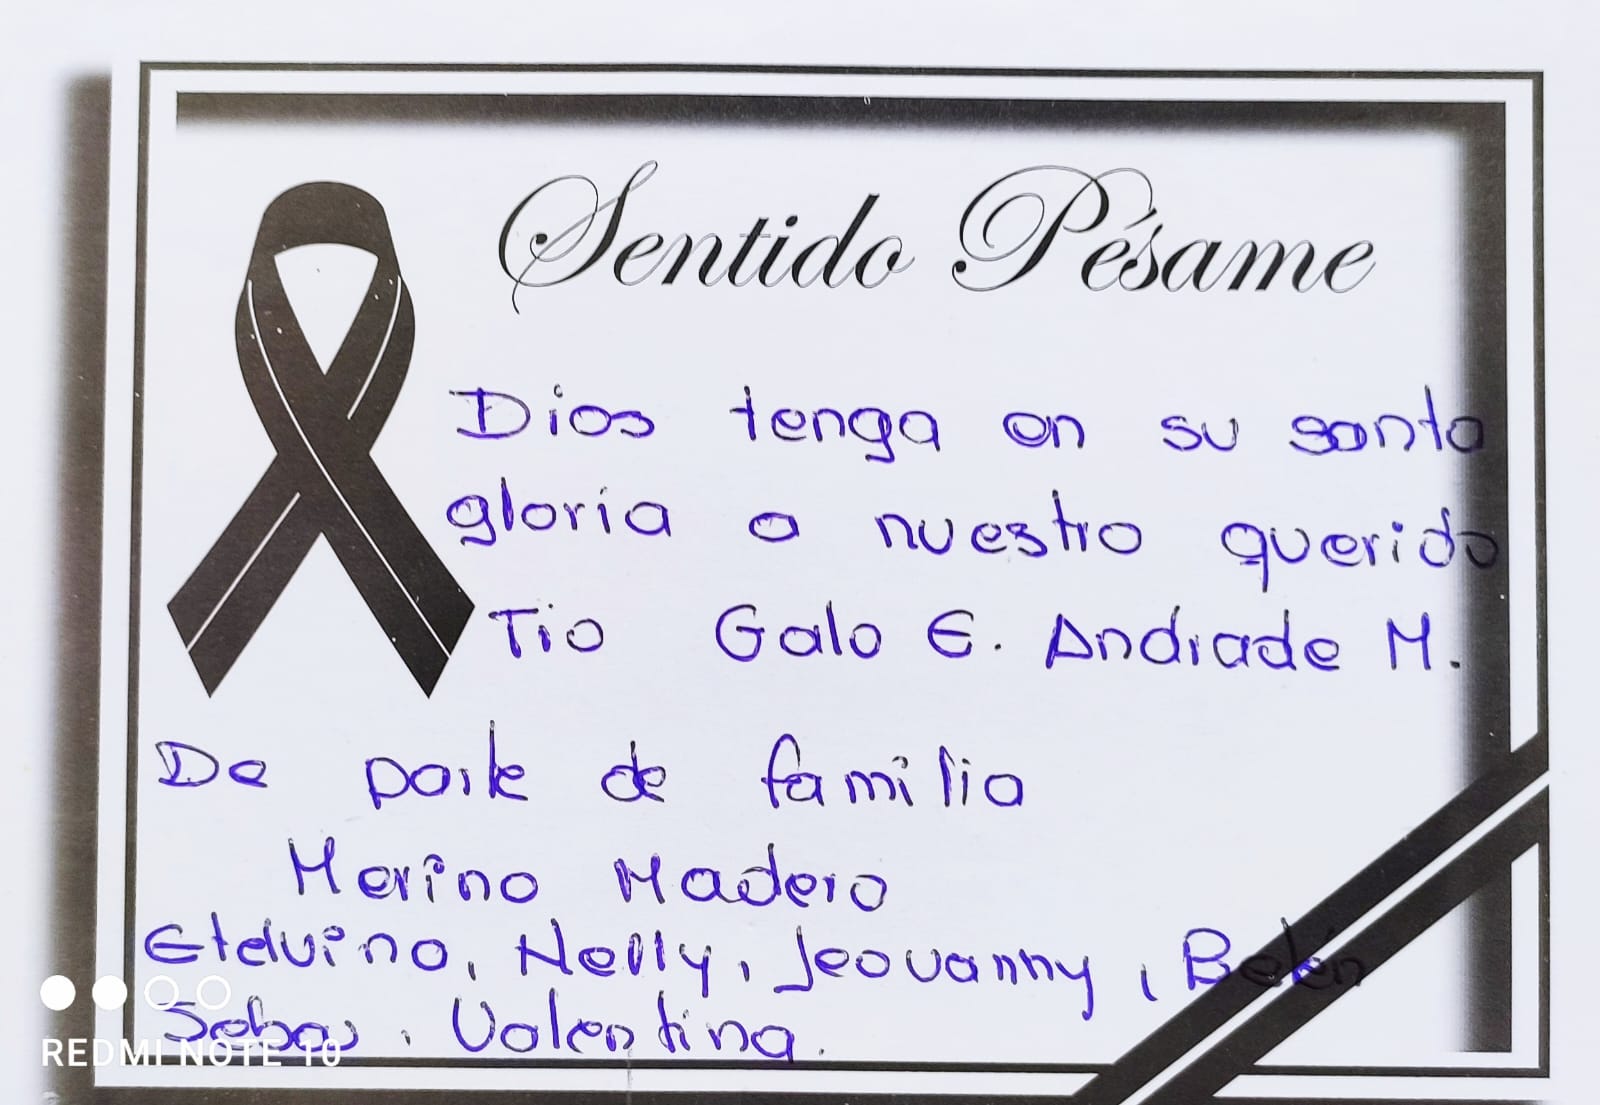 Sentido Pésame
Dios tenga en su santa
gloria a nuestro querido
Tio Galo E. Andrade M.
De parte de familia
Merino Madero
Etelvino, Nelly, Jeovanny, Belén
Sebas, Valentina.
REDMI NOTE 10